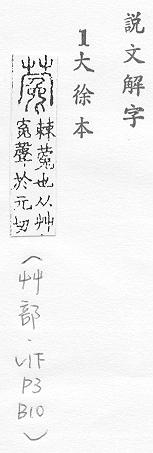 說文解字
1大徐本
蒬
棘蒬也从艸
冤聲於元切
(艸部.1下
P3
B10)